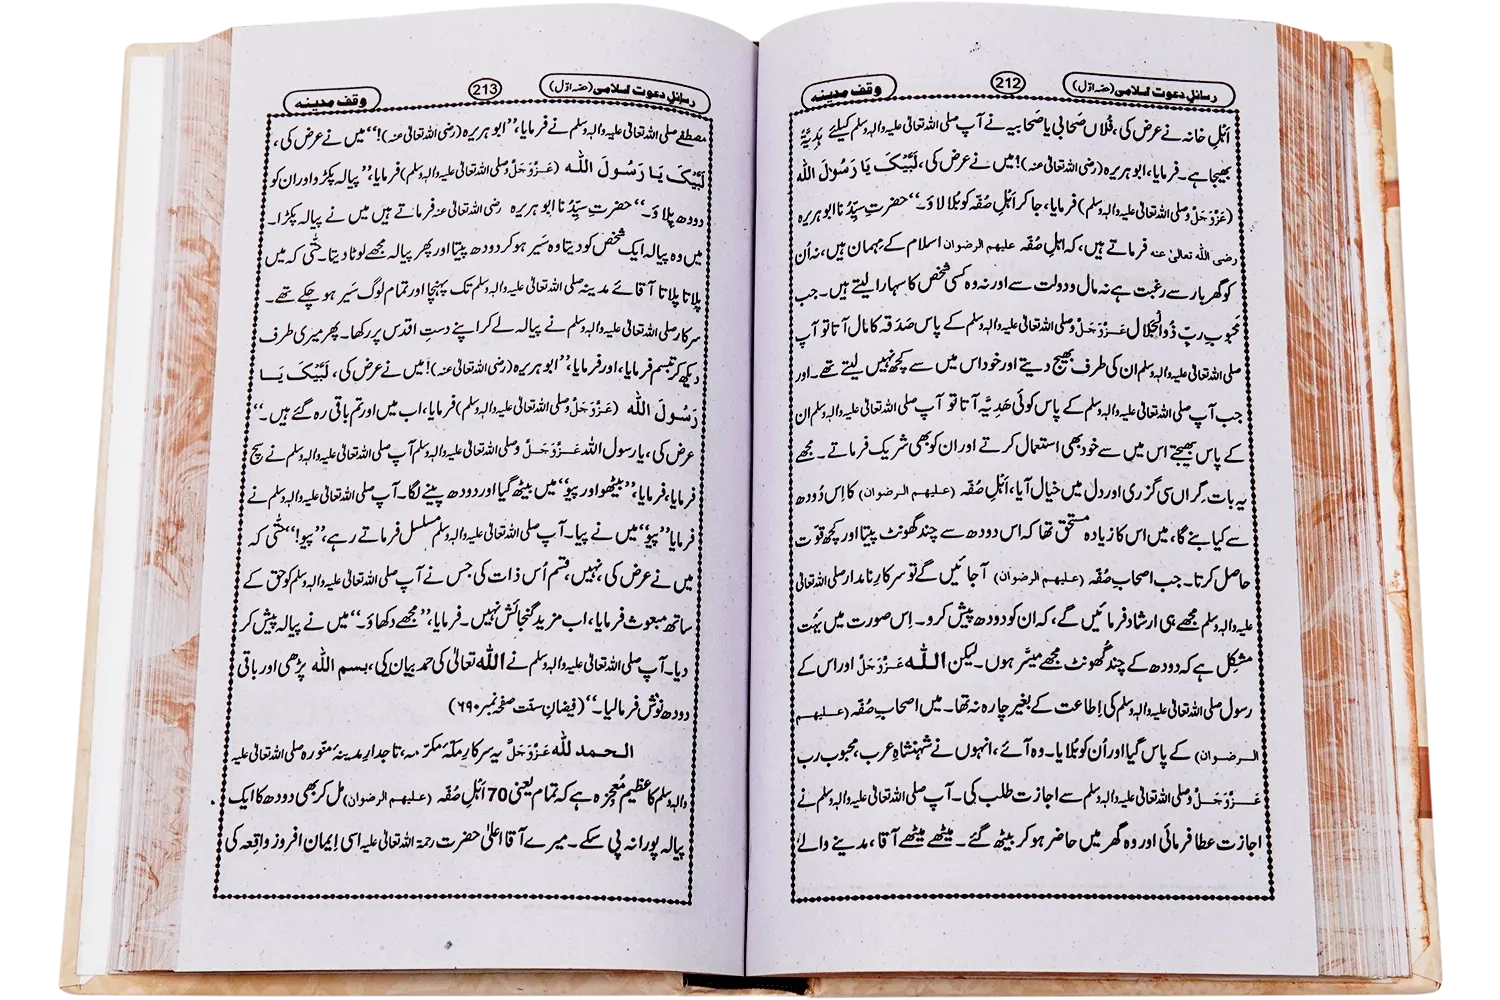 رسائلِ دعوتِ اسلامی (حصّہ اوّل)
212
وقفِ مدینہ
اَہلِ خانہ نے عرض کی، فُلاں صَحابی یا صَحابیہ نے آپ صلی اللہ تعالیٰ علیہ والہٖ وسلم کیلئے ہَدِیَّۃً
بھیجا ہے۔ فرمایا، ابو ہریرہ (رضی اللہ تعالیٰ عنہ)! میں نے عرض کی، لَبَّیْکَ یَا رَسُولَ اللہ
(عَزَّوَجَلَّ وصلی اللہ تعالیٰ علیہ والہٖ وسلم) فرمایا، جا کر اَہْلِ صُفّہ کو بُلا لاؤ۔‘‘ حضرتِ سیِّدُنا ابو ہریرہ
رضی اللہ تعالیٰ عنہ فرماتے ہیں، کہ اہلِ صُفّہ علیہم الرضوان اسلام کے مِہمان ہیں، نہ اُن
کو گھر بار سے رغبت ہے نہ مال و دولت سے اور نہ وہ کسی شخص کا سہارا لیتے ہیں۔ جب
محبوبِ ربِّ ذُوالْجَلال عَزَّوَجَلَّ وصلی اللہ تعالیٰ علیہ والہٖ وسلم کے پاس صَدَقہ کا مال آتا تو آپ
صلی اللہ تعالیٰ علیہ والہٖ وسلم ان کی طرف بھیج دیتے اور خود اس میں سے کچھ نہیں لیتے تھے۔ اور
جب آپ صلی اللہ تعالیٰ علیہ والہٖ وسلم کے پاس کوئی ھَدِیَّہ آتا تو آپ صلی اللہ تعالیٰ علیہ والہٖ وسلم ان
کے پاس بھیجتے اس میں سے خود بھی استعمال کرتے اور ان کو بھی شریک فرماتے۔ مجھے
یہ بات گراں سی گزری اور دل میں خیال آیا، اَہْلِ صُفّہ (علیہم الرضوان) کا اِس دُودھ
سے کیا بنے گا، میں اس کا زیادہ مستحق تھا کہ اس دودھ سے چند گھونٹ پیتا اور کچھ قوّت
حاصل کرتا۔ جب اصحابِ صُفّہ (علیہم الرضوان) آجائیں گے تو سرکارِ نامدار صلی اللہ تعالیٰ
علیہ والہٖ وسلم مجھے ہی ارشاد فرمائیں گے، کہ ان کو دودھ پیش کرو۔ اِس صورت میں بَہُت
مشکِل ہے کہ دودھ کے چند گھونٹ مجھے میسَّر ہوں۔ لیکن اللہ عَزَّوَجَلَّ اور اس کے
رسول صلی اللہ تعالیٰ علیہ والہٖ وسلم کی اِطاعت کے بغیر چارہ نہ تھا۔ میں اصحابِ صُفّہ (علیہم
الرضوان) کے پاس گیا اور اُن کو بُلایا۔ وہ آئے، انہوں نے شہنشاہِ عرب، محبوبِ رب
عَزَّوَجَلَّ وصلی اللہ تعالیٰ علیہ والہٖ وسلم سے اجازت طلب کی۔ آپ صلی اللہ تعالیٰ علیہ والہٖ وسلم نے
اجازت عطا فرمائی اور وہ گھر میں حاضر ہو کر بیٹھ گئے۔ میٹھے میٹھے آقا، مدینے والے
رسائلِ دعوتِ اسلامی (حصّہ اوّل)
213
وقفِ مدینہ
مصطفٰے صلی اللہ تعالیٰ علیہ والہٖ وسلم نے فرمایا، ’’ابو ہریرہ (رضی اللہ تعالیٰ عنہ)!‘‘ میں نے عرض کی،
لَبَّیْکَ یَا رَسُولَ اللہ (عَزَّوَجَلَّ وصلی اللہ تعالیٰ علیہ والہٖ وسلم) فرمایا، ’’پیالہ پکڑو اور ان کو
دودھ پلاؤ۔‘‘ حضرتِ سیِّدُنا ابو ہریرہ رضی اللہ تعالیٰ عنہ فرماتے ہیں میں نے پیالہ پکڑا۔
میں وہ پیالہ ایک شخص کو دیتا وہ سَیر ہو کر دودھ پیتا اور پھر پیالہ مجھے لوٹا دیتا۔ حتّٰی کہ میں
پلاتا پلاتا آقائے مدینہ صلی اللہ تعالیٰ علیہ والہٖ وسلم تک پہنچا اور تمام لوگ سَیر ہو چکے تھے۔
سرکار صلی اللہ تعالیٰ علیہ والہٖ وسلم نے پیالہ لے کر اپنے دستِ اقدس پر رکھا۔ پھر میری طرف
دیکھ کر تبسم فرمایا، اور فرمایا، ’’ابو ہریرہ (رضی اللہ تعالیٰ عنہ)! میں نے عرض کی، لَبَّیْکَ یَا
رَسُولَ اللہ (عَزَّوَجَلَّ وصلی اللہ تعالیٰ علیہ والہٖ وسلم) فرمایا، اب میں اور تم باقی رہ گئے ہیں۔‘‘
عرض کی، یا رسول اللہ عَزَّوَجَلَّ وصلی اللہ تعالیٰ علیہ والہٖ وسلم آپ صلی اللہ تعالیٰ علیہ والہٖ وسلم نے سچ
فرمایا، فرمایا، ’’بیٹھو اور پیو‘‘ میں بیٹھ گیا اور دودھ پینے لگا۔ آپ صلی اللہ تعالیٰ علیہ والہٖ وسلم نے
فرمایا ’’پیو‘‘ میں نے پیا۔ آپ صلی اللہ تعالیٰ علیہ والہٖ وسلم مسلسل فرماتے رہے، ’’پیو!‘‘ حتّٰی کہ
میں نے عرض کی، نہیں، قسم اُس ذات کی جس نے آپ صلی اللہ تعالیٰ علیہ والہٖ وسلم کو حق کے
ساتھ مبعوث فرمایا، اب مزید گنجائش نہیں۔ فرمایا، ’’مجھے دکھاؤ۔‘‘ میں نے پیالہ پیش کر
دیا۔ آپ صلی اللہ تعالیٰ علیہ والہٖ وسلم نے اللہ تعالیٰ کی حمد بیان کی، بسم اللہ پڑھی اور باقی
دودھ نوش فرما لیا۔‘‘ (فیضانِ سنّت صفحہ نمبر ۶۹۰)
الحمد للہ عَزَّوَجَلَّ یہ سرکارِ مکّہ مکرّمہ، تاجدارِ مدینہ منوّرہ صلی اللہ تعالیٰ علیہ
والہٖ وسلم کا عظیم مُعجِزہ ہے کہ تمام یعنی 70 اَہْلِ صُفّہ (علیہم الرضوان) مل کر بھی دودھ کا ایک
پیالہ پورا نہ پی سکے۔ میرے آقا اعلیٰ حضرت رحمۃ اللہ تعالیٰ علیہ اسی اِیمان افروز واقِعہ کی